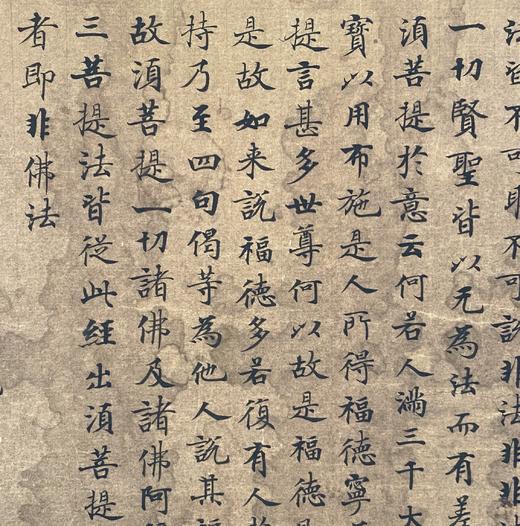 法皆不可取不可說非法非非
一切賢聖皆以无為法而有差
湏菩提於意云何若人滿三千大
寶以用布施是人所得福德寧
提言甚多世尊何以故是福德
是故如来說福德多若復有人
持乃至四句偈等為他人說其福
故湏菩提一切諸佛及諸佛阿
三菩提法皆從此經出湏菩提
者即非佛法